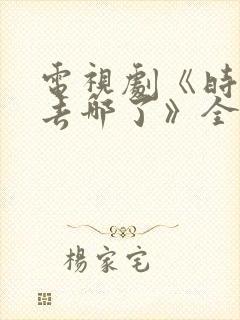 電視劇《時
去哪了》全
楊家宅